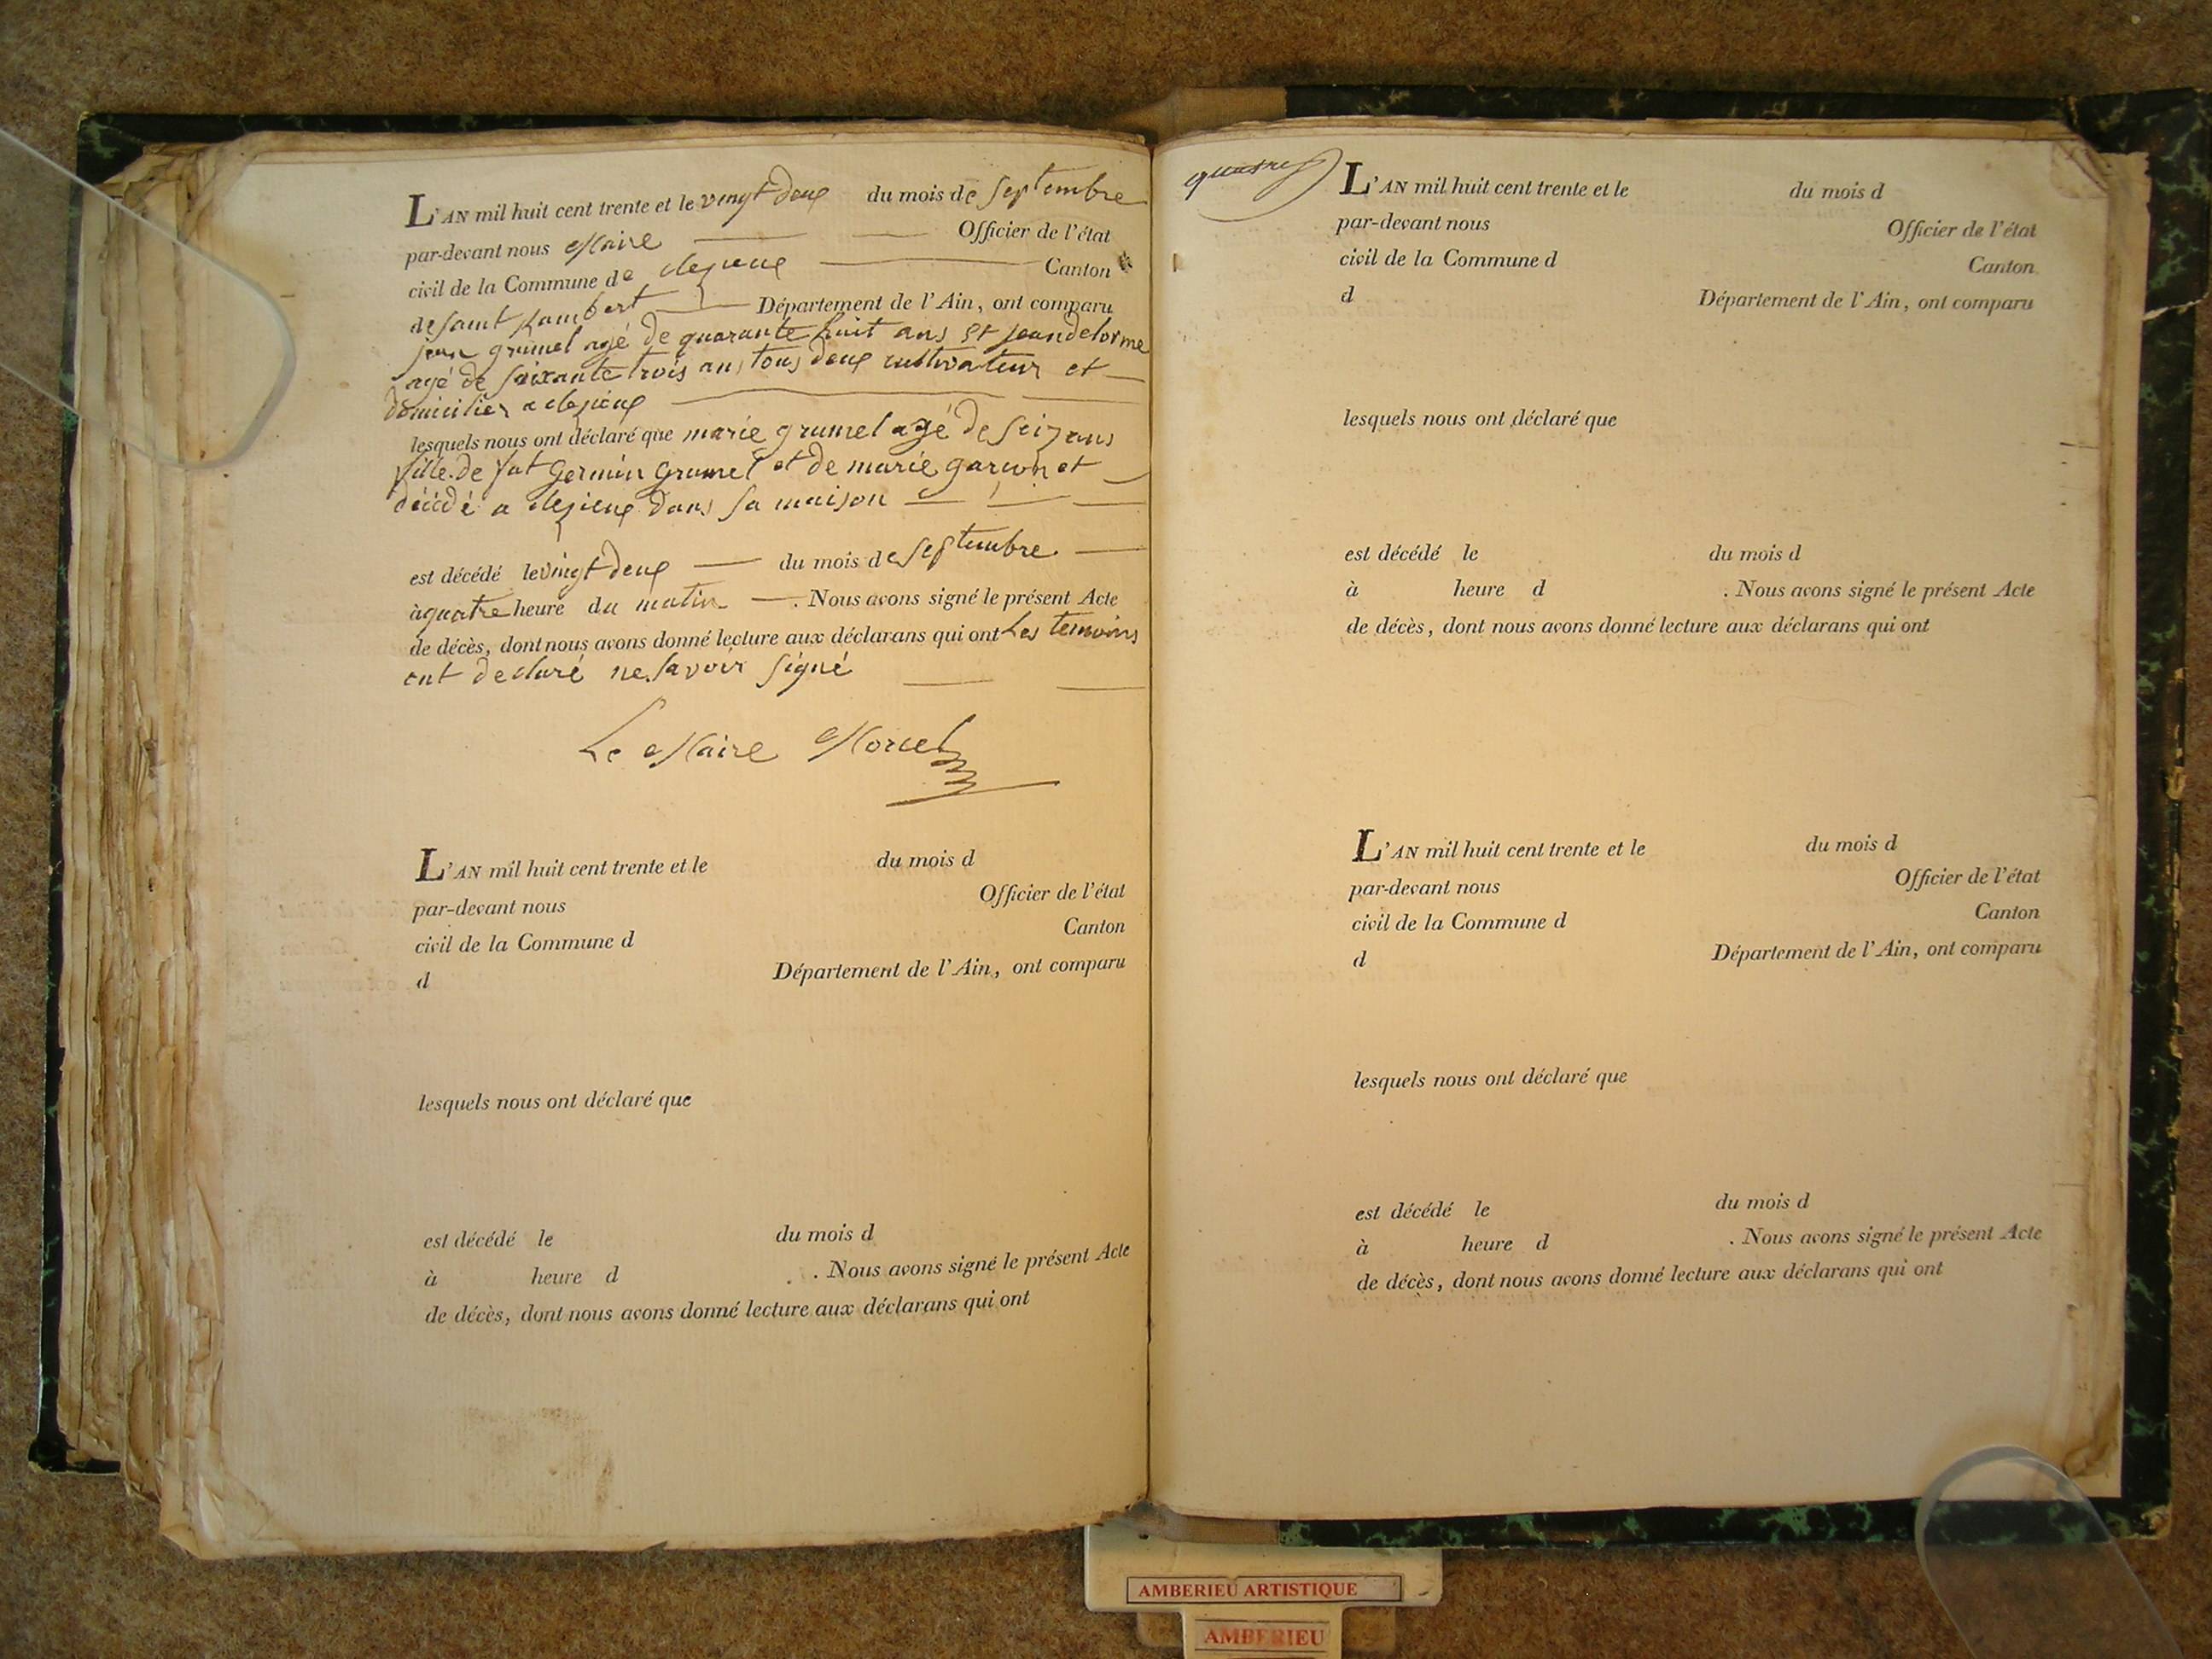 L'AN mil huit cent trente et le vingt deux du mois de septembre
par-devant nous Maire Officier de l'état
civil de la Commune de clezieux Canton
de saint Rambert Département de l'Ain, ont comparu
jean grumel agé de quarante huit ans et jean delorme
agé de soixante trois ans tous deux cultivateur et
domicilier a clezieux
lesquels nous ont déclaré que marie grumel agé de seizans
fille de fut Germin Grumel et de marie garcon et
décédé a clezieux dans sa maison
est décédé le vingt deux du mois de septembre
à quatre heure du matin . Nous avons signé le présent Acte
de décès, dont nous avons donné lecture aux déclarans qui ont Les temoins
ont declaré ne savoir signé
Le Maire Morcel
L'AN mil huit cent trente et le du mois d
par-devant nous Officier de l'état
civil de la Commune d Canton
d Département de l'Ain, ont comparu
lesquels nous ont déclaré que
est décédé le du mois d
à heure d . Nous avons signé le présent Acte
de décès, dont nous avons donné lecture aux déclarans qui ont
quatre
L'AN mil huit cent trente et le du mois d
par-devant nous Officier de l'état
civil de la Commune d Canton
d Département de l'Ain, ont comparu
lesquels nous ont déclaré que
est décédé le du mois d
à heure d . Nous avons signé le présent Acte
de décès, dont nous avons donné lecture aux déclarans qui ont
L'AN mil huit cent trente et le du mois d
par-devant nous Officier de l'état
civil de la Commune d Canton
d Département de l'Ain, ont comparu
lesquels nous ont déclaré que
est décédé le du mois d
à heure d . Nous avons signé le présent Acte
de décès, dont nous avons donné lecture aux déclarans qui ont
AMBERIEU ARTISTIQUE
AMBERIEU